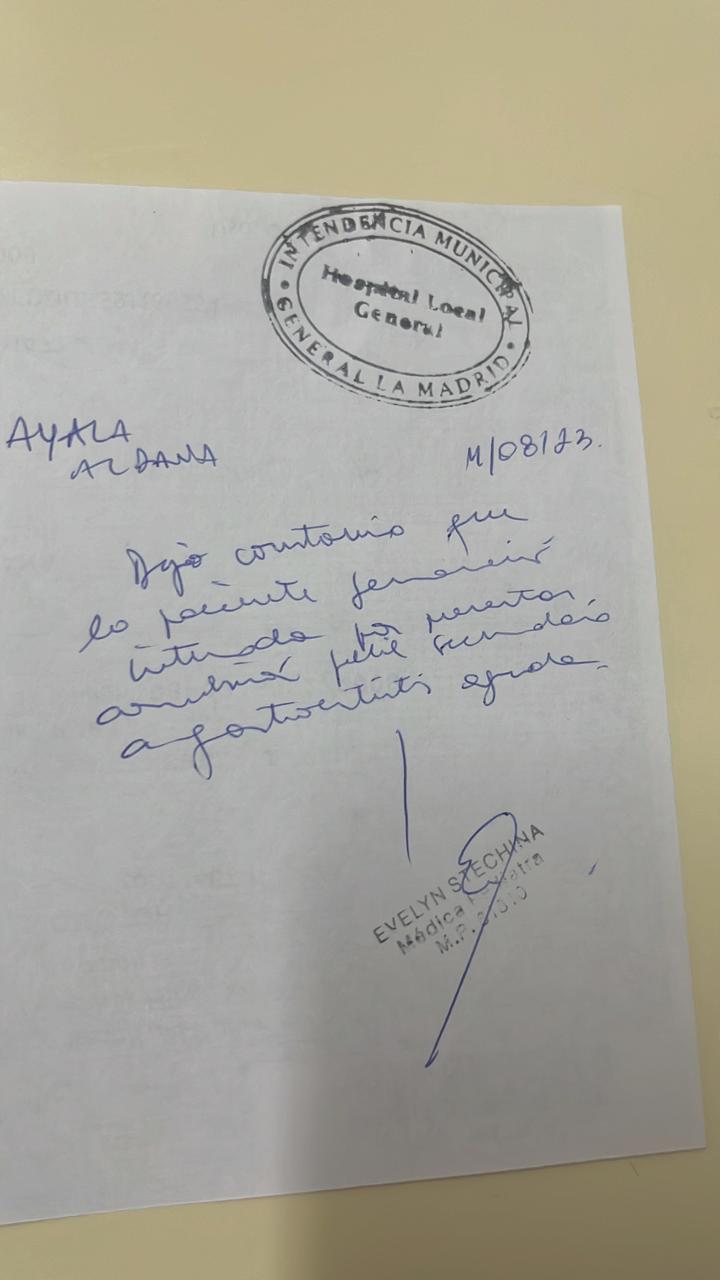 INTENDENCIA MUNICIPAL
Hospital Local
General
GENERAL LA MADRID
AYALA
ALDANA
11/08/23.
Dejo constancia que
la paciente permaneció
internada por presentar
convulsión febril secundaria
a gastroenteritis aguda.
EVELYN STECHINA
Médica Pediatra
M.P.